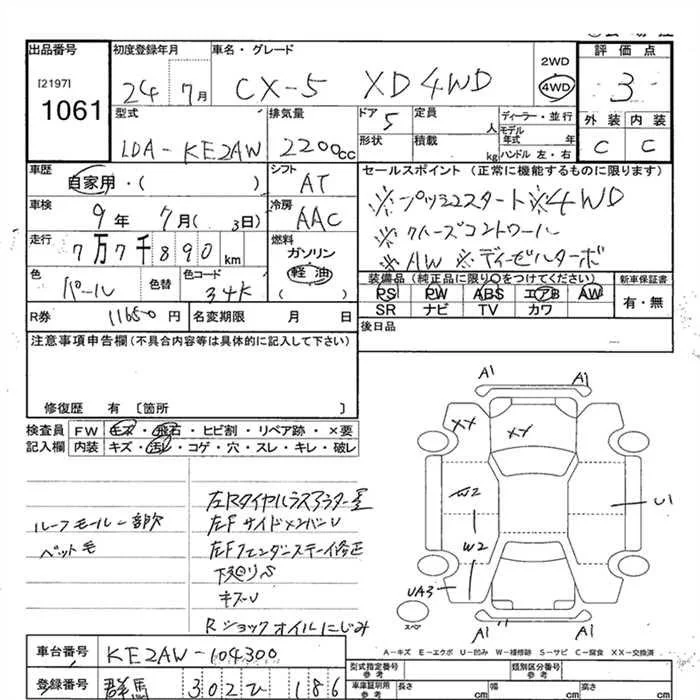 出品番号 初度登録年月 車名・グレード 評価点
[2197]
1061
24 7月 CX-5 XD4WD 2WD 4WD 3
型式 排気量 ドア 5 定員 人 ディーラー・並行 外装 内装
モデル年式 年
LDA-KE2AW 2200cc 形状 積載 kg ハンドル 左・右 C C
車歴 シフト セールスポイント (正常に機能するものに限ります)
自家用・( ) AT
※プッシュスタート ※4WD
車検 9年 7月( 3日) 冷房 AAC
※クルーズコントロール
走行 7万7千890km 燃料 ガソリン 軽油 ( )
※AW ※ディーゼルターボ
色 パール 色替 色コード 34K
装備品(純正品に限り○をつけてください) 新車保証書
PS PW ABS エアB AW 有・無
SR ナビ TV カワ
R券 11650円 名変期限 月 日
後日品
注意事項申告欄(不具合内容等は具体的に記入して下さい)
修復歴 有 〔箇所 〕
検査員 FW キズ・飛石・ヒビ割・リペア跡・×要
記入欄 内装 キズ・汚レ・コゲ・穴・スレ・キレ・破レ
ルーフモール一部欠
ペット毛
左FサイドメンバーU
左Fフェンダーステー修正
下廻りS
キズU
Rショックオイルにじみ
A1 A1
XX XY
W2 U1
W2
UA3
スペア
A1 A1
A-キズ E-エクボ U-凹み W-補修跡 S-サビ C-腐食 XX-交換済
車台番号 KE2AW-104300
型式指定番号 参考 類別区分番号 参考
登録番号 群馬 302 ひ 186
車庫証明用 参考 長さ cm 幅 cm 高さ cm